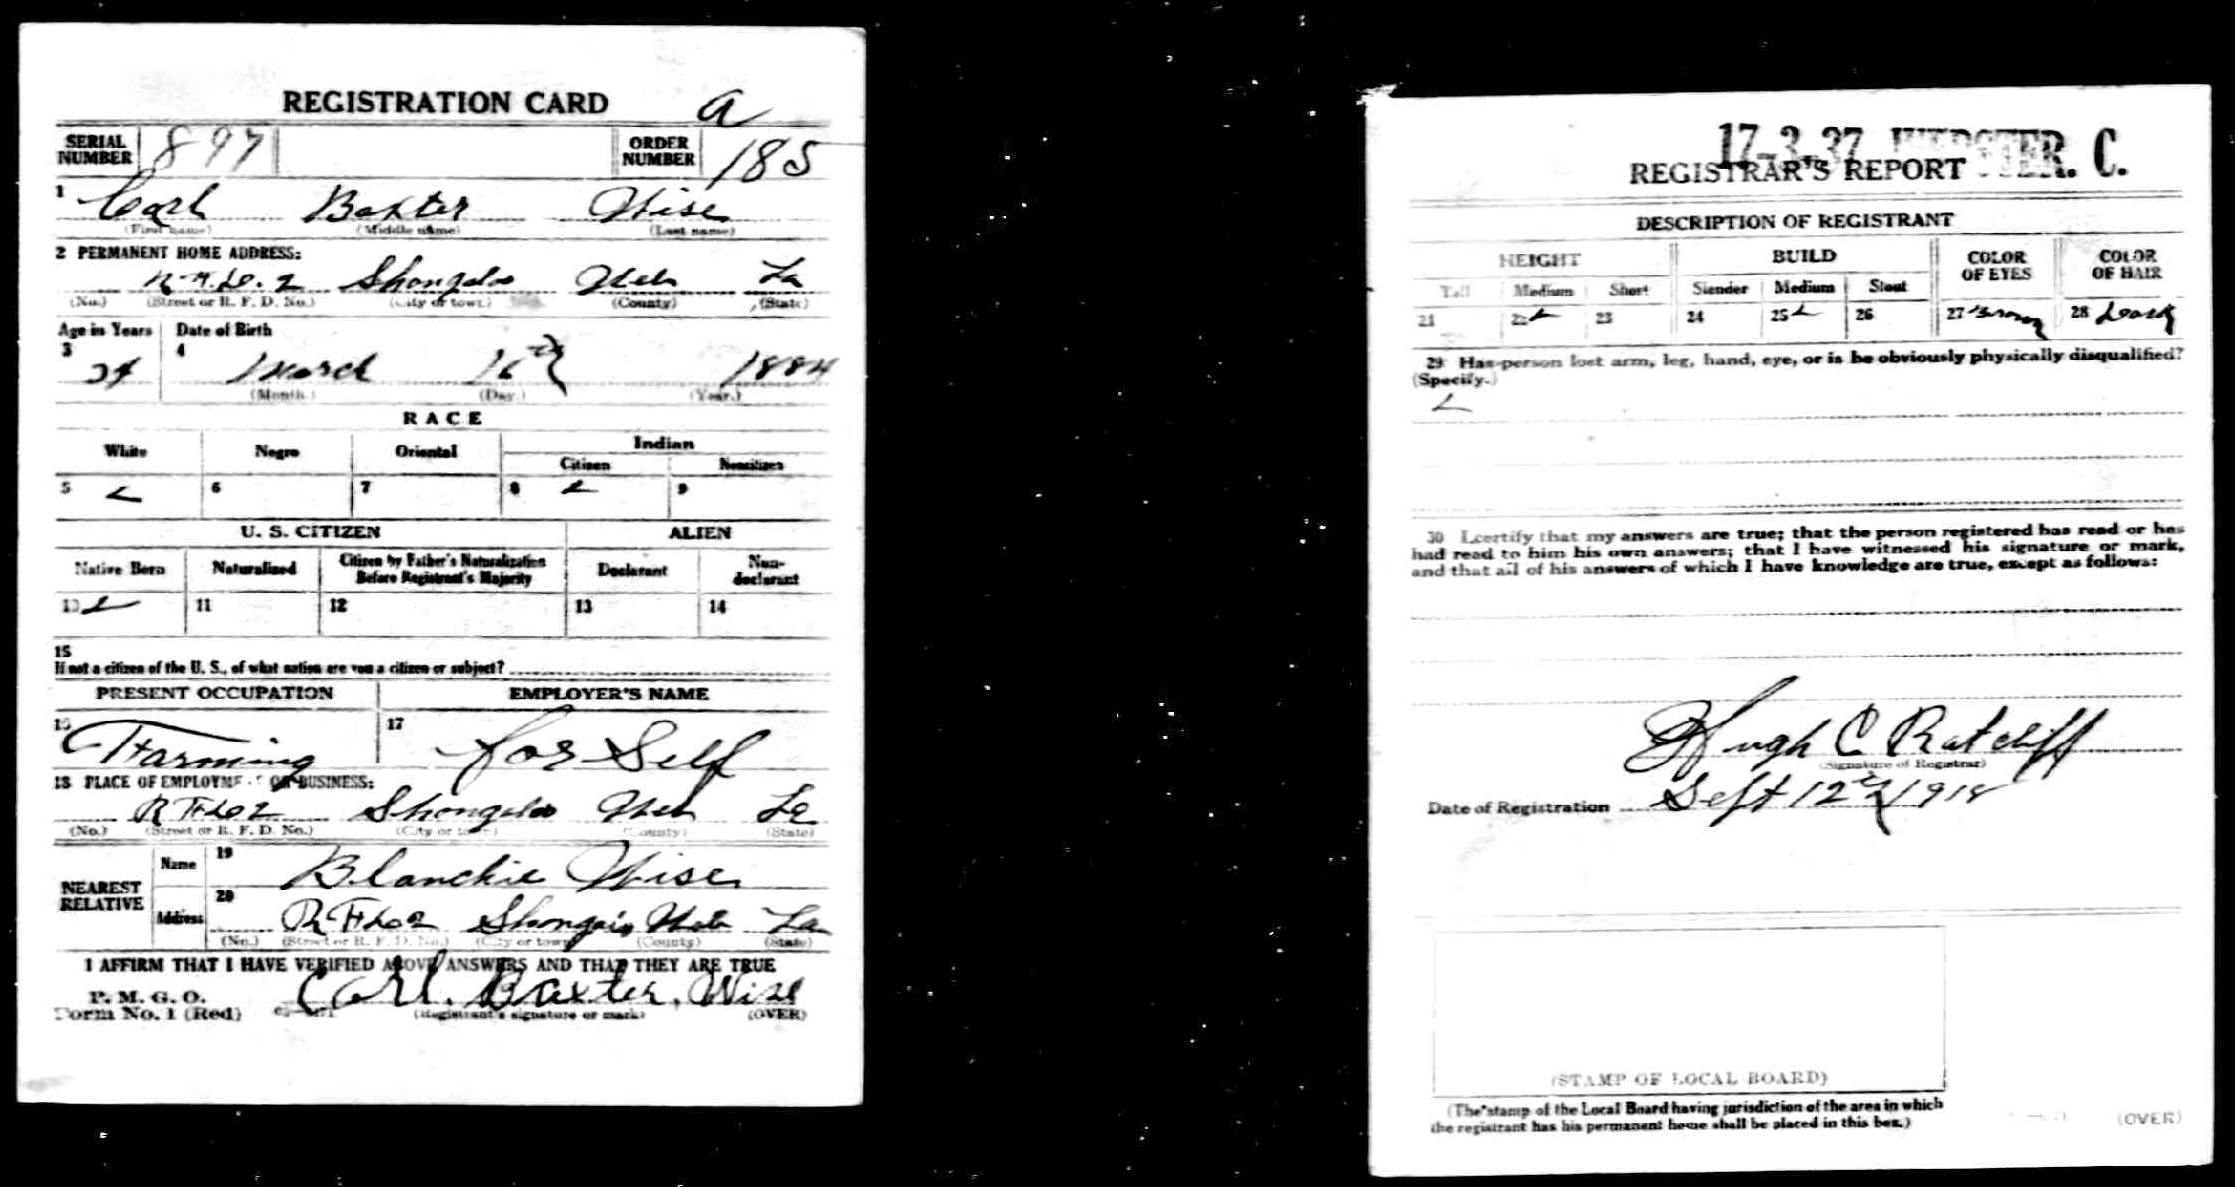 REGISTRATION CARD a
SERIAL NUMBER 897 ORDER NUMBER 185
1 Carl Baxter Wise
(First name) (Middle name) (Last name)
2 PERMANENT HOME ADDRESS:
R.F.D. 2 Shongaloo Web La
(No.) (Street or R. F. D. No.) (City or town) (County) (State)
Age in Years Date of Birth
3 34 4 March 16th 1884
(Month.) (Day.) (Year.)
RACE
White Negro Oriental Indian
Citizen Noncitizen
5 6 7 8 9
U. S. CITIZEN ALIEN
Native Born Naturalized Citizen by Father's Naturalization Before Registrant's Majority Declarant Non-declarant
10 11 12 13 14
15
If not a citizen of the U. S., of what nation are you a citizen or subject?
PRESENT OCCUPATION EMPLOYER'S NAME
16 Farming 17 for Self
18 PLACE OF EMPLOYMENT OR BUSINESS:
R F D 2 Shongaloo Web La
(No.) (Street or R. F. D. No.) (City or town) (County) (State)
NEAREST RELATIVE
Name 19 Blanchie Wise
Address 20 R F D 2 Shongaloo Web La
(No.) (Street or R. F. D. No.) (City or town) (County) (State)
I AFFIRM THAT I HAVE VERIFIED ABOVE ANSWERS AND THAT THEY ARE TRUE
P. M. G. O.
Form No. 1 (Red) Carl. Baxter. Wise
(Registrant's signature or mark) (OVER)
17-3-37 WEBSTER. C.
REGISTRAR'S REPORT
DESCRIPTION OF REGISTRANT
HEIGHT BUILD COLOR OF EYES COLOR OF HAIR
Tall Medium Short Slender Medium Stout
21 22 23 24 25 26 27 Brown 28 Dark
29 Has person lost arm, leg, hand, eye, or is he obviously physically disqualified?
(Specify.)
30 I certify that my answers are true; that the person registered has read or has
had read to him his own answers; that I have witnessed his signature or mark,
and that all of his answers of which I have knowledge are true, except as follows:
Hugh C Ratcliff
(Signature of Registrar)
Date of Registration Sept 12th 1918
(STAMP OF LOCAL BOARD)
(The stamp of the Local Board having jurisdiction of the area in which
the registrant has his permanent home shall be placed in this box.)
(OVER)